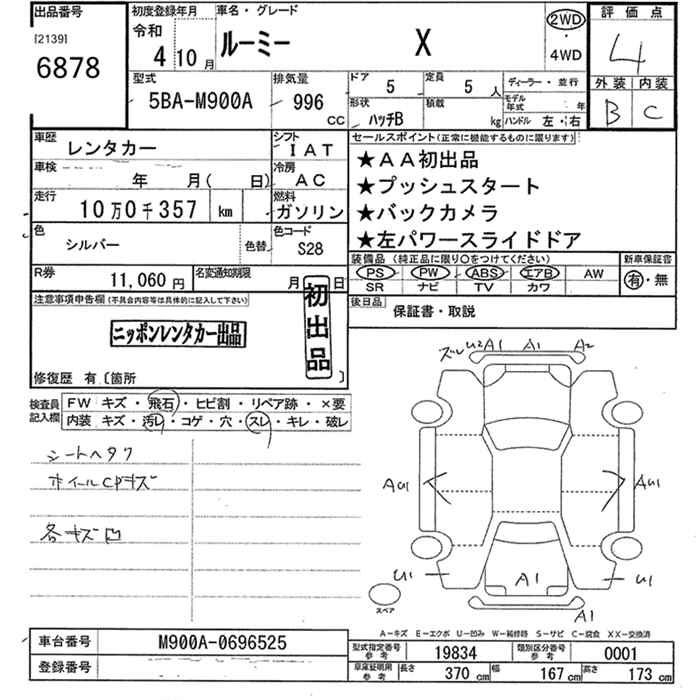 出品番号
[2139]
6878
初度登録年月
令和
4 10月
車名・グレード
ルーミー X
2WD
・
4WD
評価点
4
外装 内装
B C
型式
5BA-M900A
排気量
996 CC
ドア 5
定員 5人
ディーラー・並行
形状 ハッチB
積載 kg
モデル年式 年
ハンドル 左・右
車歴
レンタカー
シフト
IAT
車検
年 月( 日)
冷房
AC
走行
10万0千357 km
燃料
ガソリン
色
シルバー
色替
色コード
S28
R券
11,060円
名変通知期限
月 日
セールスポイント(正常に機能するものに限ります)
★AA初出品
★プッシュスタート
★バックカメラ
★左パワースライドドア
装備品(純正品に限り〇をつけてください)
PS PW ABS エアB AW
SR ナビ TV カワ
新車保証書
有・無
後日品
保証書・取説
注意事項申告欄(不具合内容等は具体的に記入して下さい)
ニッポンレンタカー出品
初出品
修復歴 有〔箇所 〕
検査員記入欄
FW キズ・飛石・ヒビ割・リペア跡・×要
内装 キズ・汚レ・コゲ・穴・スレ・キレ・破レ
シートヘタリ
ホイールCPキズ
各キズ凹
ズレ U2 A1 A1 A2
AU1 AU1
U1 A1 U1
A1
スペア
A-キズ E-エクボ U-凹み W-補修跡 S-サビ C-腐食 XX-交換済
車台番号
M900A-0696525
登録番号
型式指定番号 参考
19834
類別区分番号 参考
0001
車庫証明用 参考
長さ 370 cm
幅 167 cm
高さ 173 cm